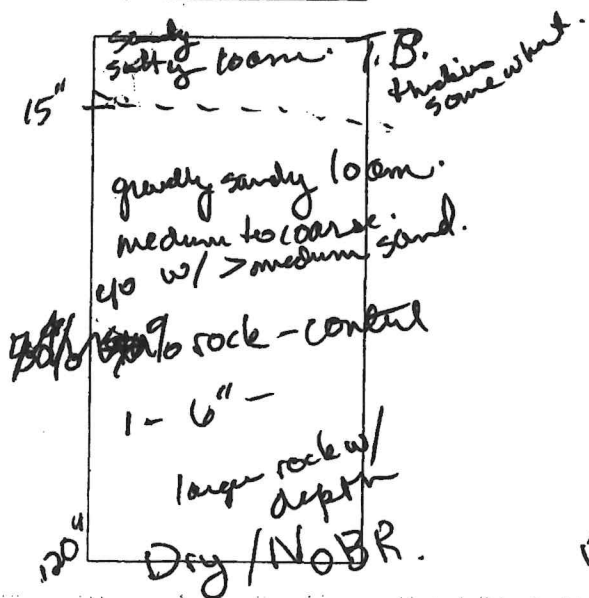 sandy
silty loam. T.B.
thickens
somewhat.
15"
gravelly sandy loam.
medium to coarse.
w/ > medium sand.
% rock - content
1 - 6" -
larger rock w/
depth
120" Dry / No BR.